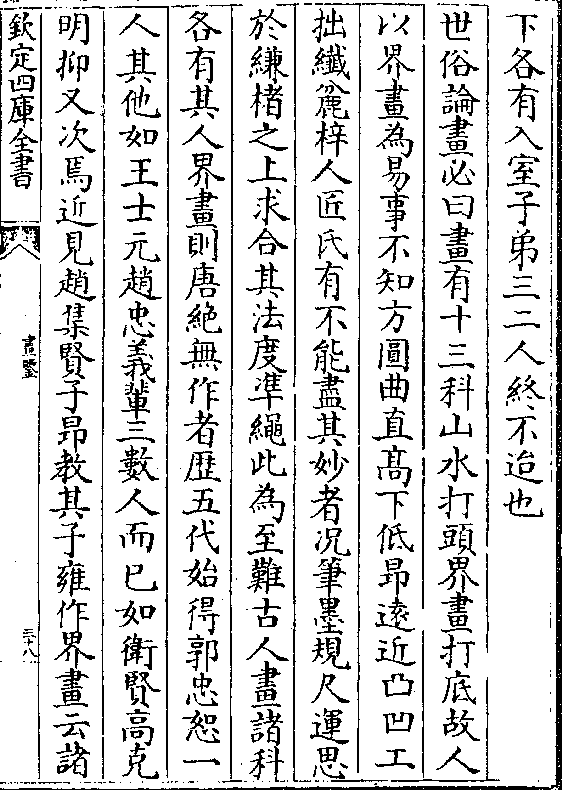 下各有入室子弟三二人終不迨也
世俗論畫必曰畫有十三科山水打頭界畫打底故人
以界畫為易事不知方圓曲直髙下低昂逺近凸凹工
拙纎麄梓人匠氏有不能盡其妙者况筆墨規尺運思
於縑楮之上求合其法度凖繩此為至難古人畫諸科
各有其人界畫則唐絶無作者歴五代始得郭忠恕一
人其他如王士元趙忠義輩三數人而已如衛賢高克
明抑又次焉近見趙集賢子昂教其子雍作界畫云諸
欽定四庫全書
畫鑒
三十八